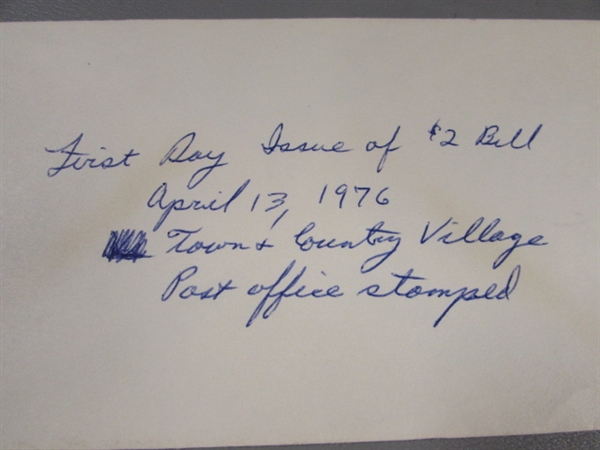 First Day Issue of $2 Bill
April 13, 1976
Town & Country Village
Post office stamped